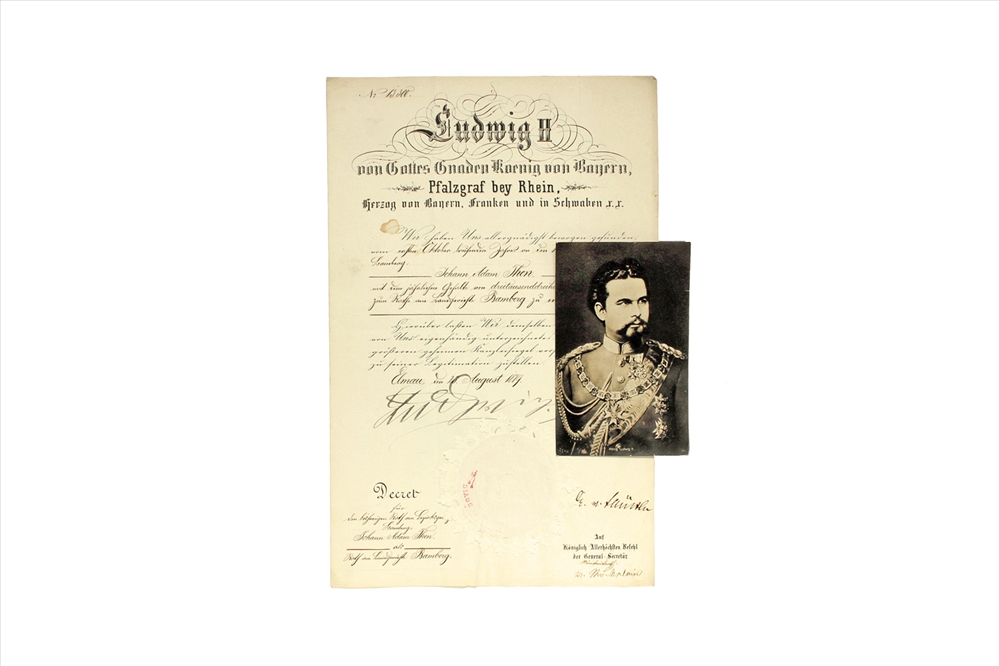 No
Ludwig II
von Gottes Gnaden Koenig von Bayern,
Pfalzgraf bey Rhein,
Herzog von Bayern, Franken und in Schwaben x.x.
Wir haben Uns allergnädigst bewogen gefunden,
vom ersten Oktober laufenden Jahres an
Bamberg
Johann Adam Then
mit dem jährlichen Gehalte von
zum Rathe am Landgerichte Bamberg zu
Hierüber lassen Wir demselben
von Uns eigenhändig unterzeichnete
größeren geheimen Kanzleisiegel
zu seiner Legitimation zustellen.
Elmau, den August 1879
Ludwig
König Ludwig II.
Decret
für
den bisherigen Rath am Bezirksger.
Bamberg
Johann Adam Then
als
Rath am Landgerichte Bamberg.
Auf
Königlich Allerhöchsten Befehl
der General-Secretär